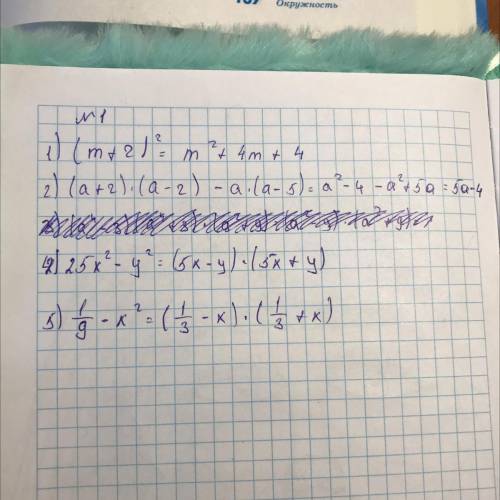 Окружность
№1
1) (m+2)² = m² + 4m + 4
2) (a+2)·(a-2) - a·(a-5) = a² - 4 - a² + 5a = 5a-4
4) 25x² - y² = (5x-y)·(5x+y)
5) 1/9 - x² = (1/3 - x)·(1/3 + x)